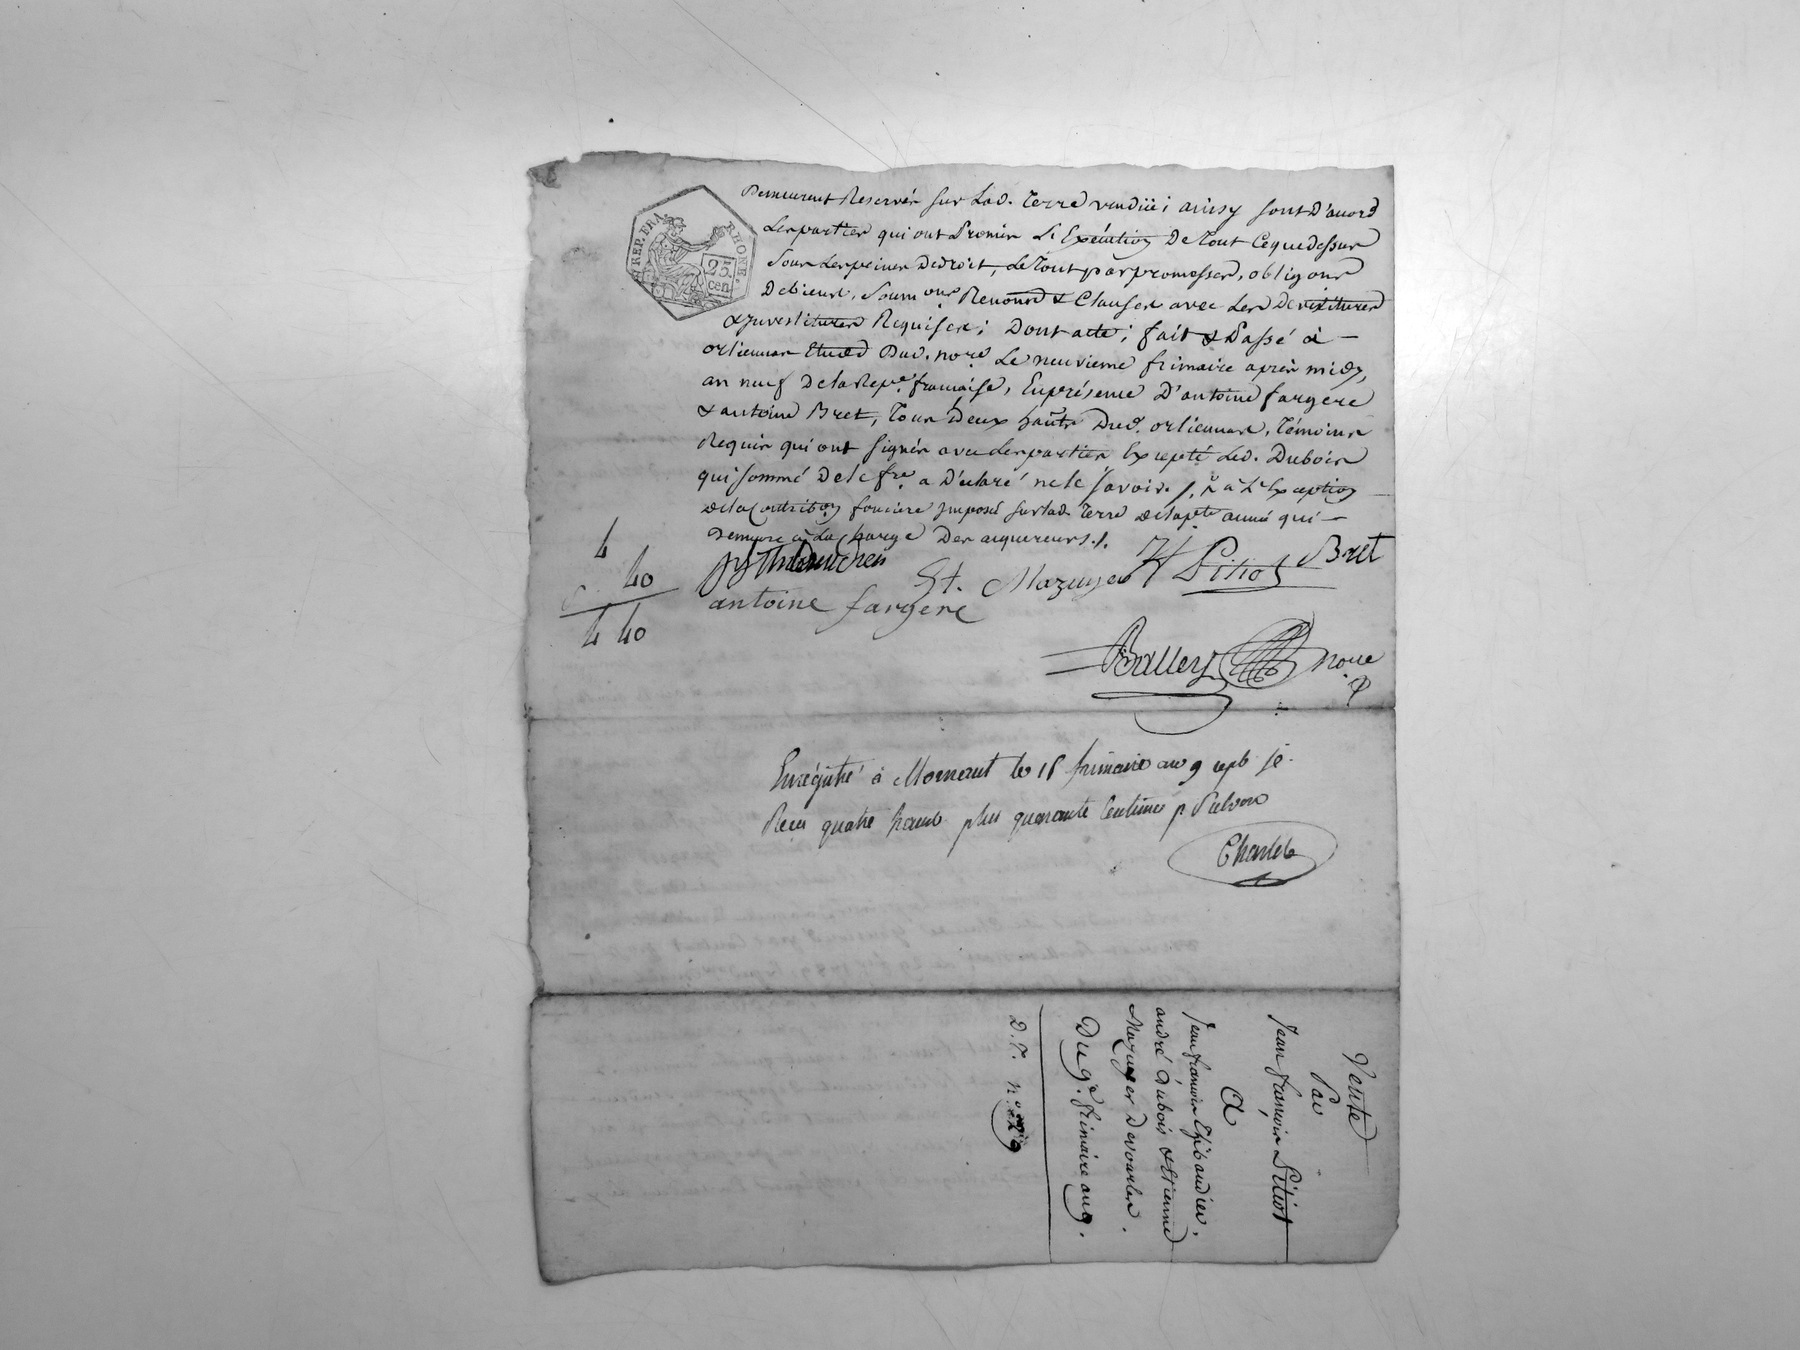 REP. FRA.
RHONE
25.
cen.
Demeurent Reservés sur Lad. Terre vendüe; ainsy sont D'acord
Les parties qui ont Promis L'Exécution De Tout Ceque dessus
Sous Les peines De droit, Le Tout par promesses, obligons
De biens, Soumons Renonons & Clauses avec Les Devestitures
& investitures Requises; Dont acte; fait & Passé à —
orlienas Etude Dud. nore Le neuvieme frimaire après midy,
an neuf De la Repe. francaise, En présence D'antoine fargere
& antoine Bret, Tous Deux habts Dud. orlienas, Témoins
Requis qui ont signés avec Les parties Excepté Led. Dubois
qui sommé De le fre a Déclaré ne le savoir ./. & à L'Exception
De la Contribon fonciere imposé sur lad. Terre De la pte année qui —
Demeure à La charge Des acquereurs ./.
4
40
4 40
jf Thibaudier
St. Mazuyer
Jf Pitiot
Bret
antoine fargere
Ballery nore
Enrégistré à Mornant le 15 frimaire an 9 repb fe.
Recu quatre francs plus quarante Centimes p Subvon
Charlet
Vente
Par
Jean françois Pitiot
A
Jean françois Thibaudier,
andré Dubois & Etienne
Mazuyer De vourles.
Du 9e. frimaire an 9.